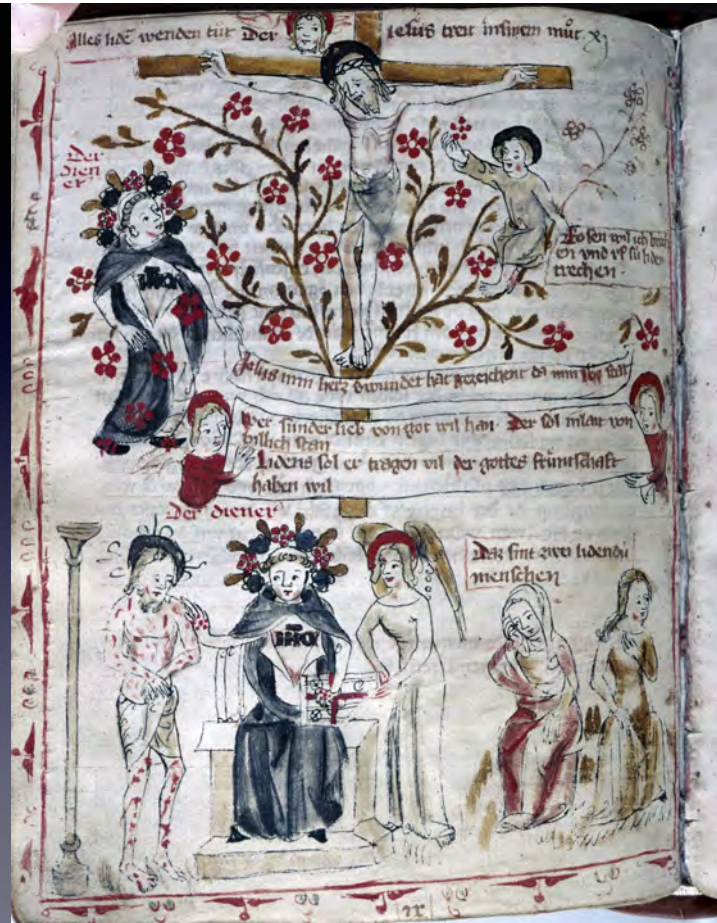 Alles lidē wenden tůt Der Iesus treit insinem můt xj
Der
dien
er
Rosen wil ich brech
en vnd vf sú liden
trechen ·
Jesus min herz vwundet hat gezeichent da min stat
Wer sunder lieb von got wil han · Der sol von
billich stan
Lidens sol er tragen vil der gottes frúntschaft
haben wil
Der diener
Daz sint zwei lidendú
menschen